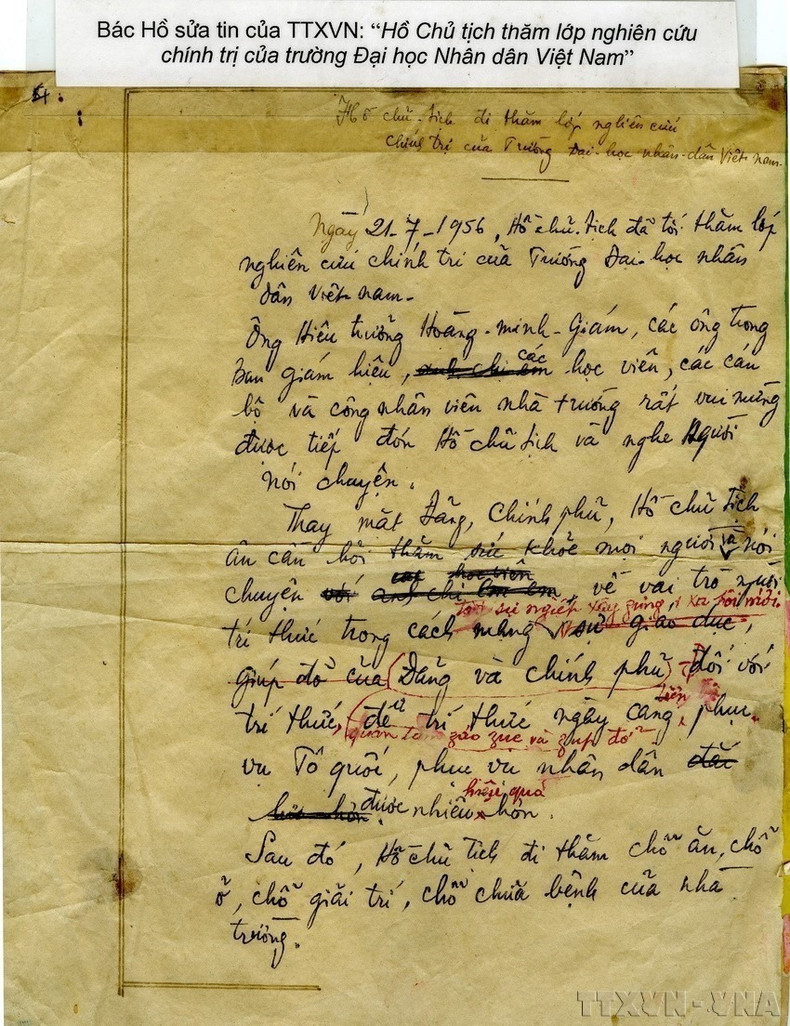 Bác Hồ sửa tin của TTXVN: “Hồ Chủ tịch thăm lớp nghiên cứu
chính trị của trường Đại học Nhân dân Việt Nam”
Hồ chủ-tịch đi thăm lớp nghiên cứu
chính trị của Trường Đại-học nhân-dân Việt-nam.
Ngày 21-7-1956, Hồ chủ-tịch đã tới thăm lớp
nghiên cứu chính trị của Trường Đại-học nhân
dân Việt-nam-
Ông Hiệu trưởng Hoàng-minh-Giám, các ông trong
các
ban giám hiệu, anh chị em học viên, các cán
bộ và công nhân viên nhà trường rất vui mừng
được tiếp đón Hồ chủ tịch và nghe Người
nói chuyện.
Thay mặt Đảng, Chính phủ, Hồ chủ tịch
ân cần hỏi thăm sức khỏe mọi người và nói
các học viên
chuyện với anh chị em, về vai trò người
tới sự nghiệp xây zựng xã hội mới
trí thức trong cách mạng sự giáo dục,
giúp đỡ của (Đảng và chính phủ) đối với
tiến bộ
trí thức, để trí thức ngày càng phục
quan tâm záo zục và zúp đỡ
vụ Tổ quốc, phục vụ nhân dân đắc
hiệu quả
lực hơn được nhiều hơn.
Sau đó, Hồ chủ tịch đi thăm chỗ ăn, chỗ
ở, chỗ giải trí, chỗ chữa bệnh của nhà
trường.
TTXVN-VNA